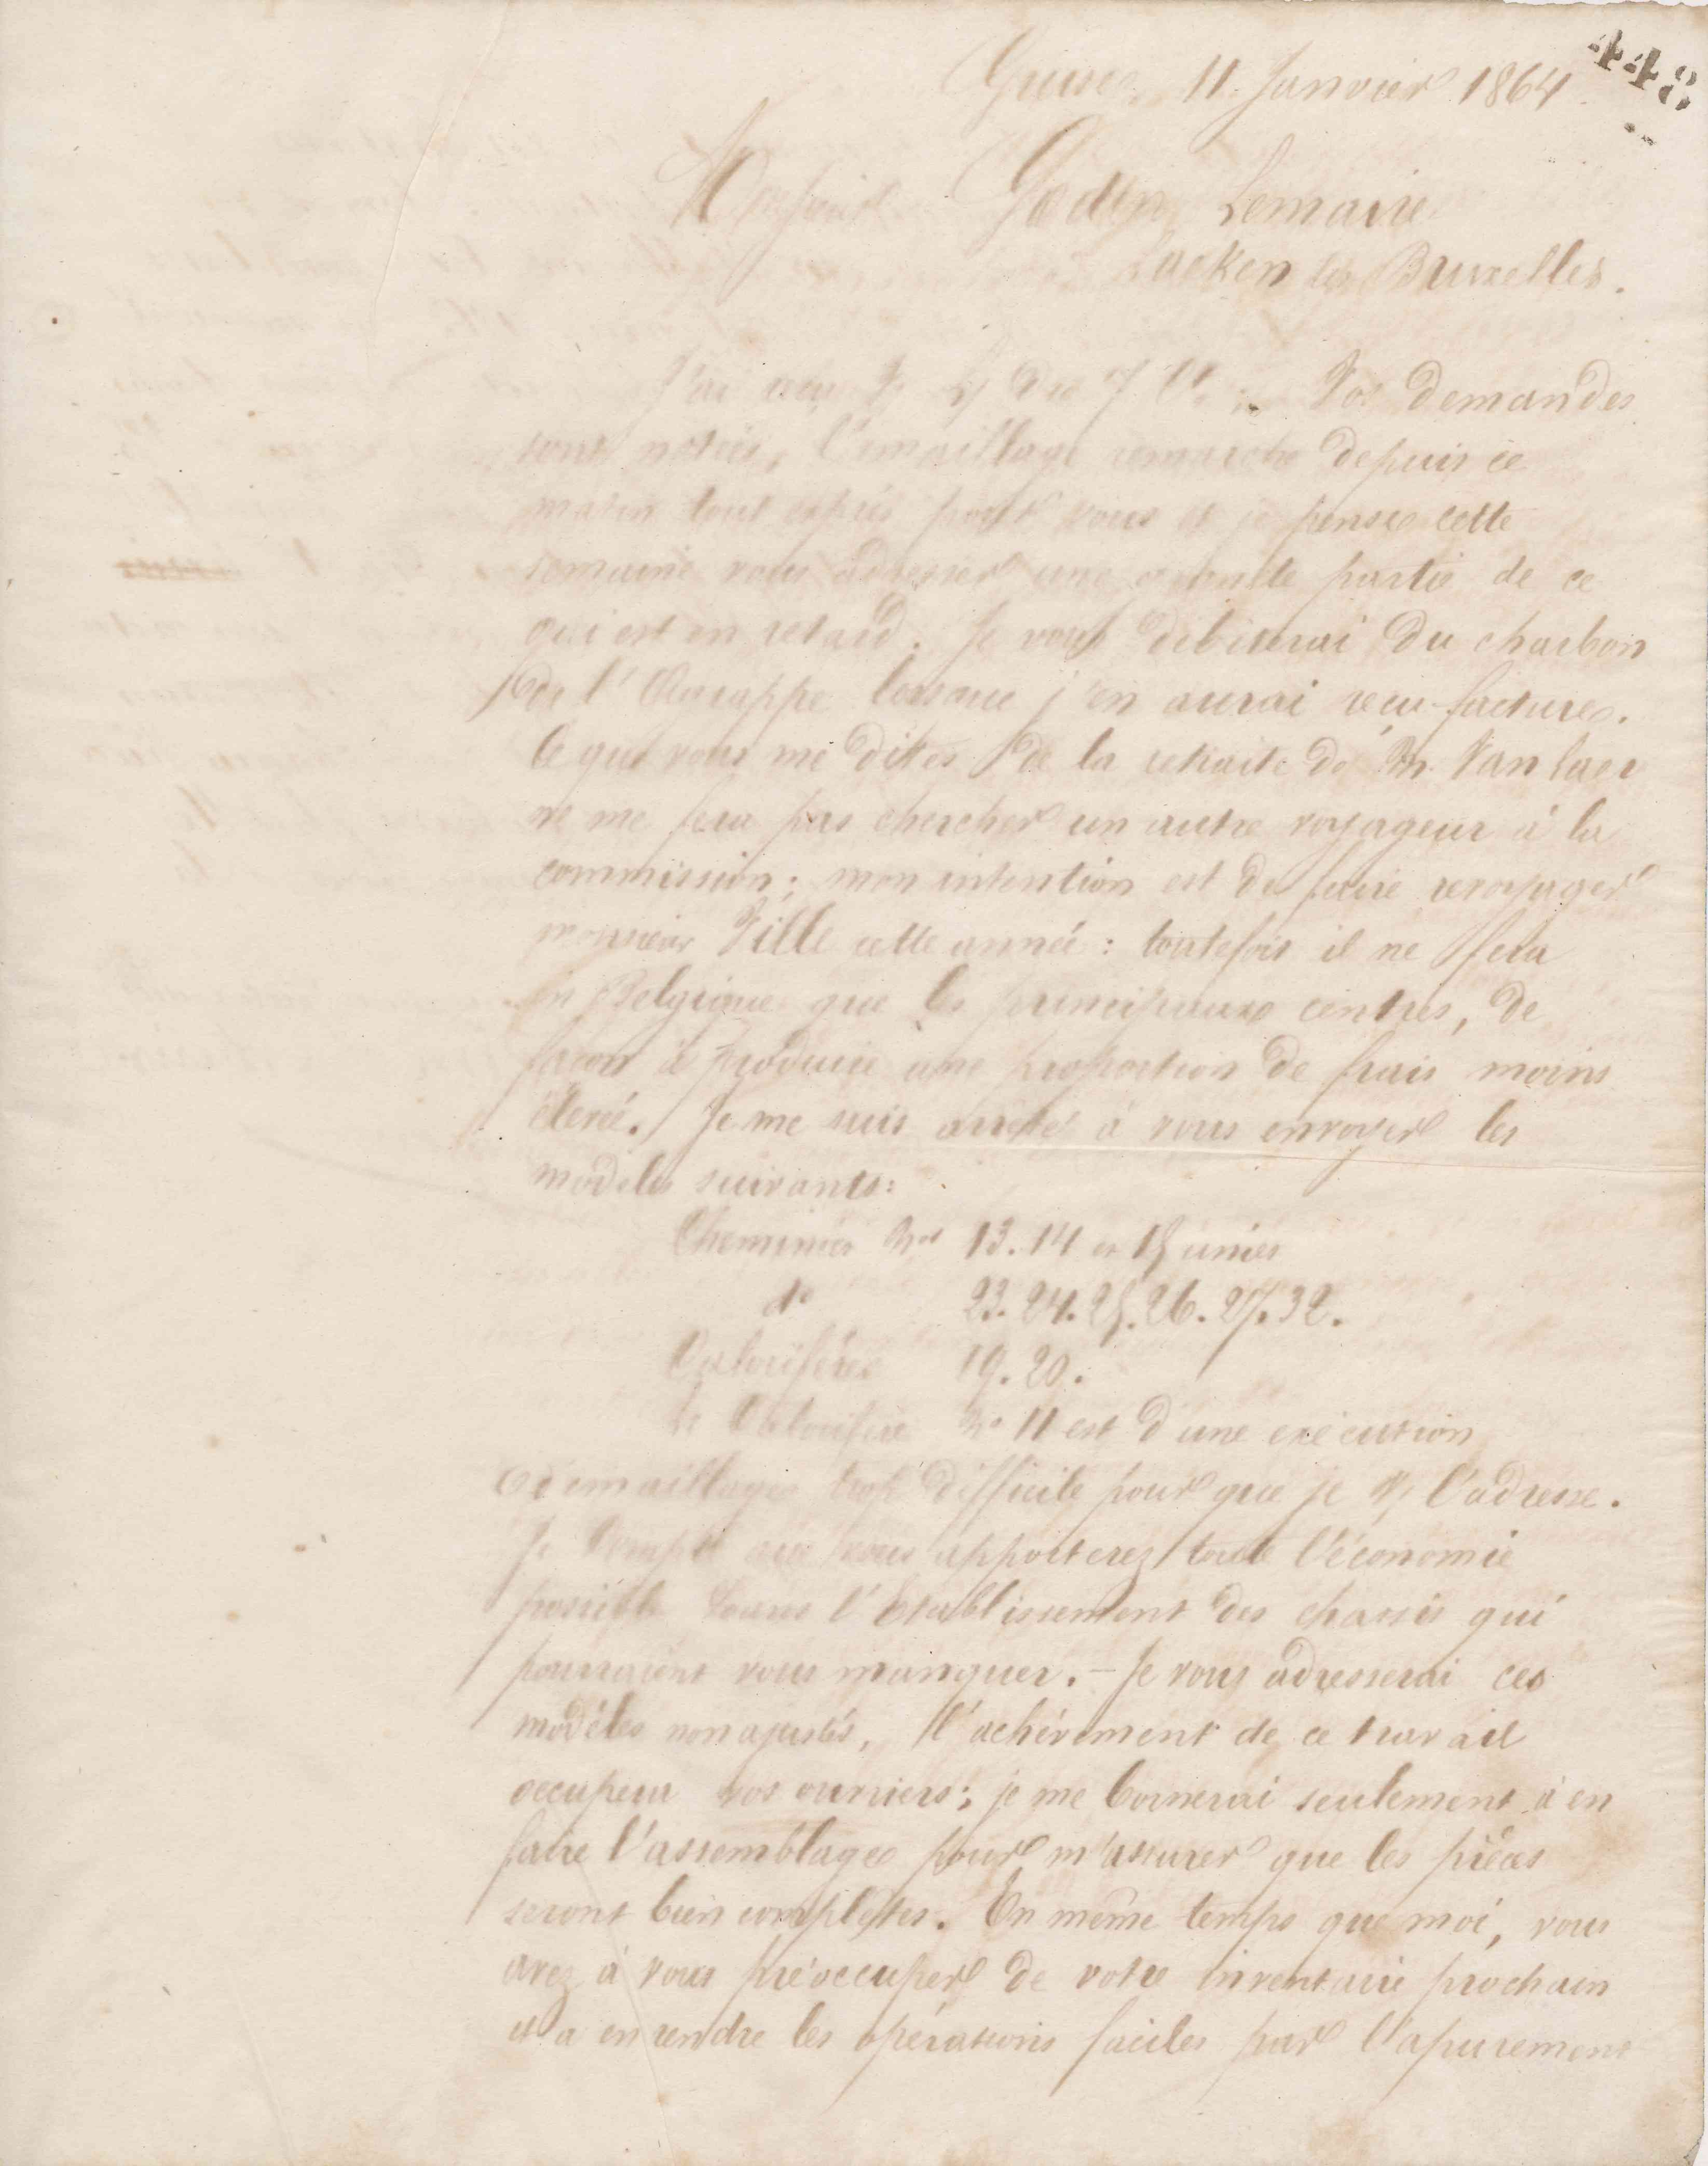 448
Guise, 11 Janvier 1864
Monsieur Godin Lemaire
Laeken les Bruxelles.
J'ai reçu Vos demandes
sont notées, l'émaillage remarche depuis ce
matin tout exprès pour vous et je pense cette
semaine vous adresser une grande partie de ce
qui est en retard. Je vous débiterai du charbon
de l'Agrappe lorsque j'en aurai reçu factures.
Ce que vous me dites de la retraite de M. Van laer
ne me fera pas chercher un autre voyageur à la
commission; mon intention est de faire revoyager
monsieur Fille cette année: toutefois il ne fera
en Belgique que les principaux centres, de
façon à produire une proportion de frais moins
élevée. Je me suis arrêté à vous envoyer les
modèles suivants:
Cheminées Nos 13. 14 et 15 unies
do 23. 24. 25. 26. 27. 32.
Calorifères 19. 20.
Le Calorifère No 11 est d'une exécution
d'émaillage trop difficile pour que je l'adresse.
Je compte que vous apporterez toute l'économie
possible dans l'Etablissement des chassis qui
pourraient vous manquer. – Je vous adresserai ces
modèles non ajustés, l'achèvement de ce travail
occupera vos ouvriers; je me bornerai seulement à en
faire l'assemblage pour m'assurer que les pièces
seront bien complètes. En même temps que moi, vous
avez à vous préoccuper de votre inventaire prochain
et à en rendre les opérations faciles par l'apurement